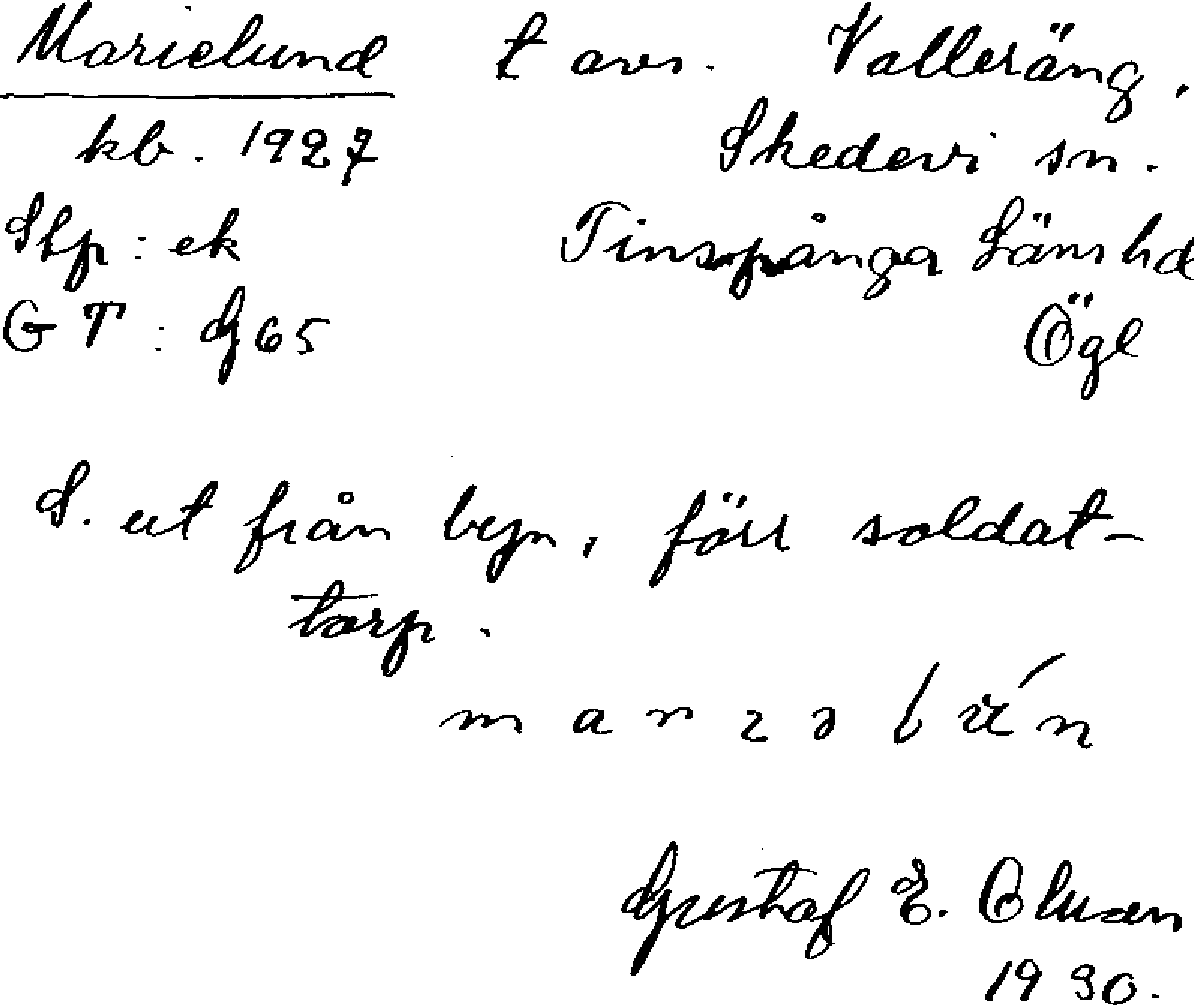 Marielund t avs. Valleräng,
kb. 1927 Skedevi sn.
Stp: ek Finspånga Läns hd
G T : G65 Ögl
S. ut från byn, förr soldat-
torp.
Gustaf E. Olsson
1930.